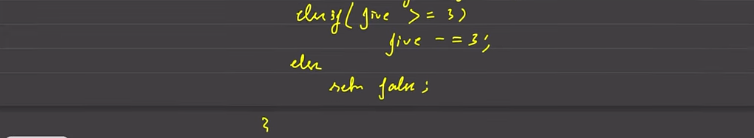 else if (five >= 3)
five -= 3;
else
return false;
}